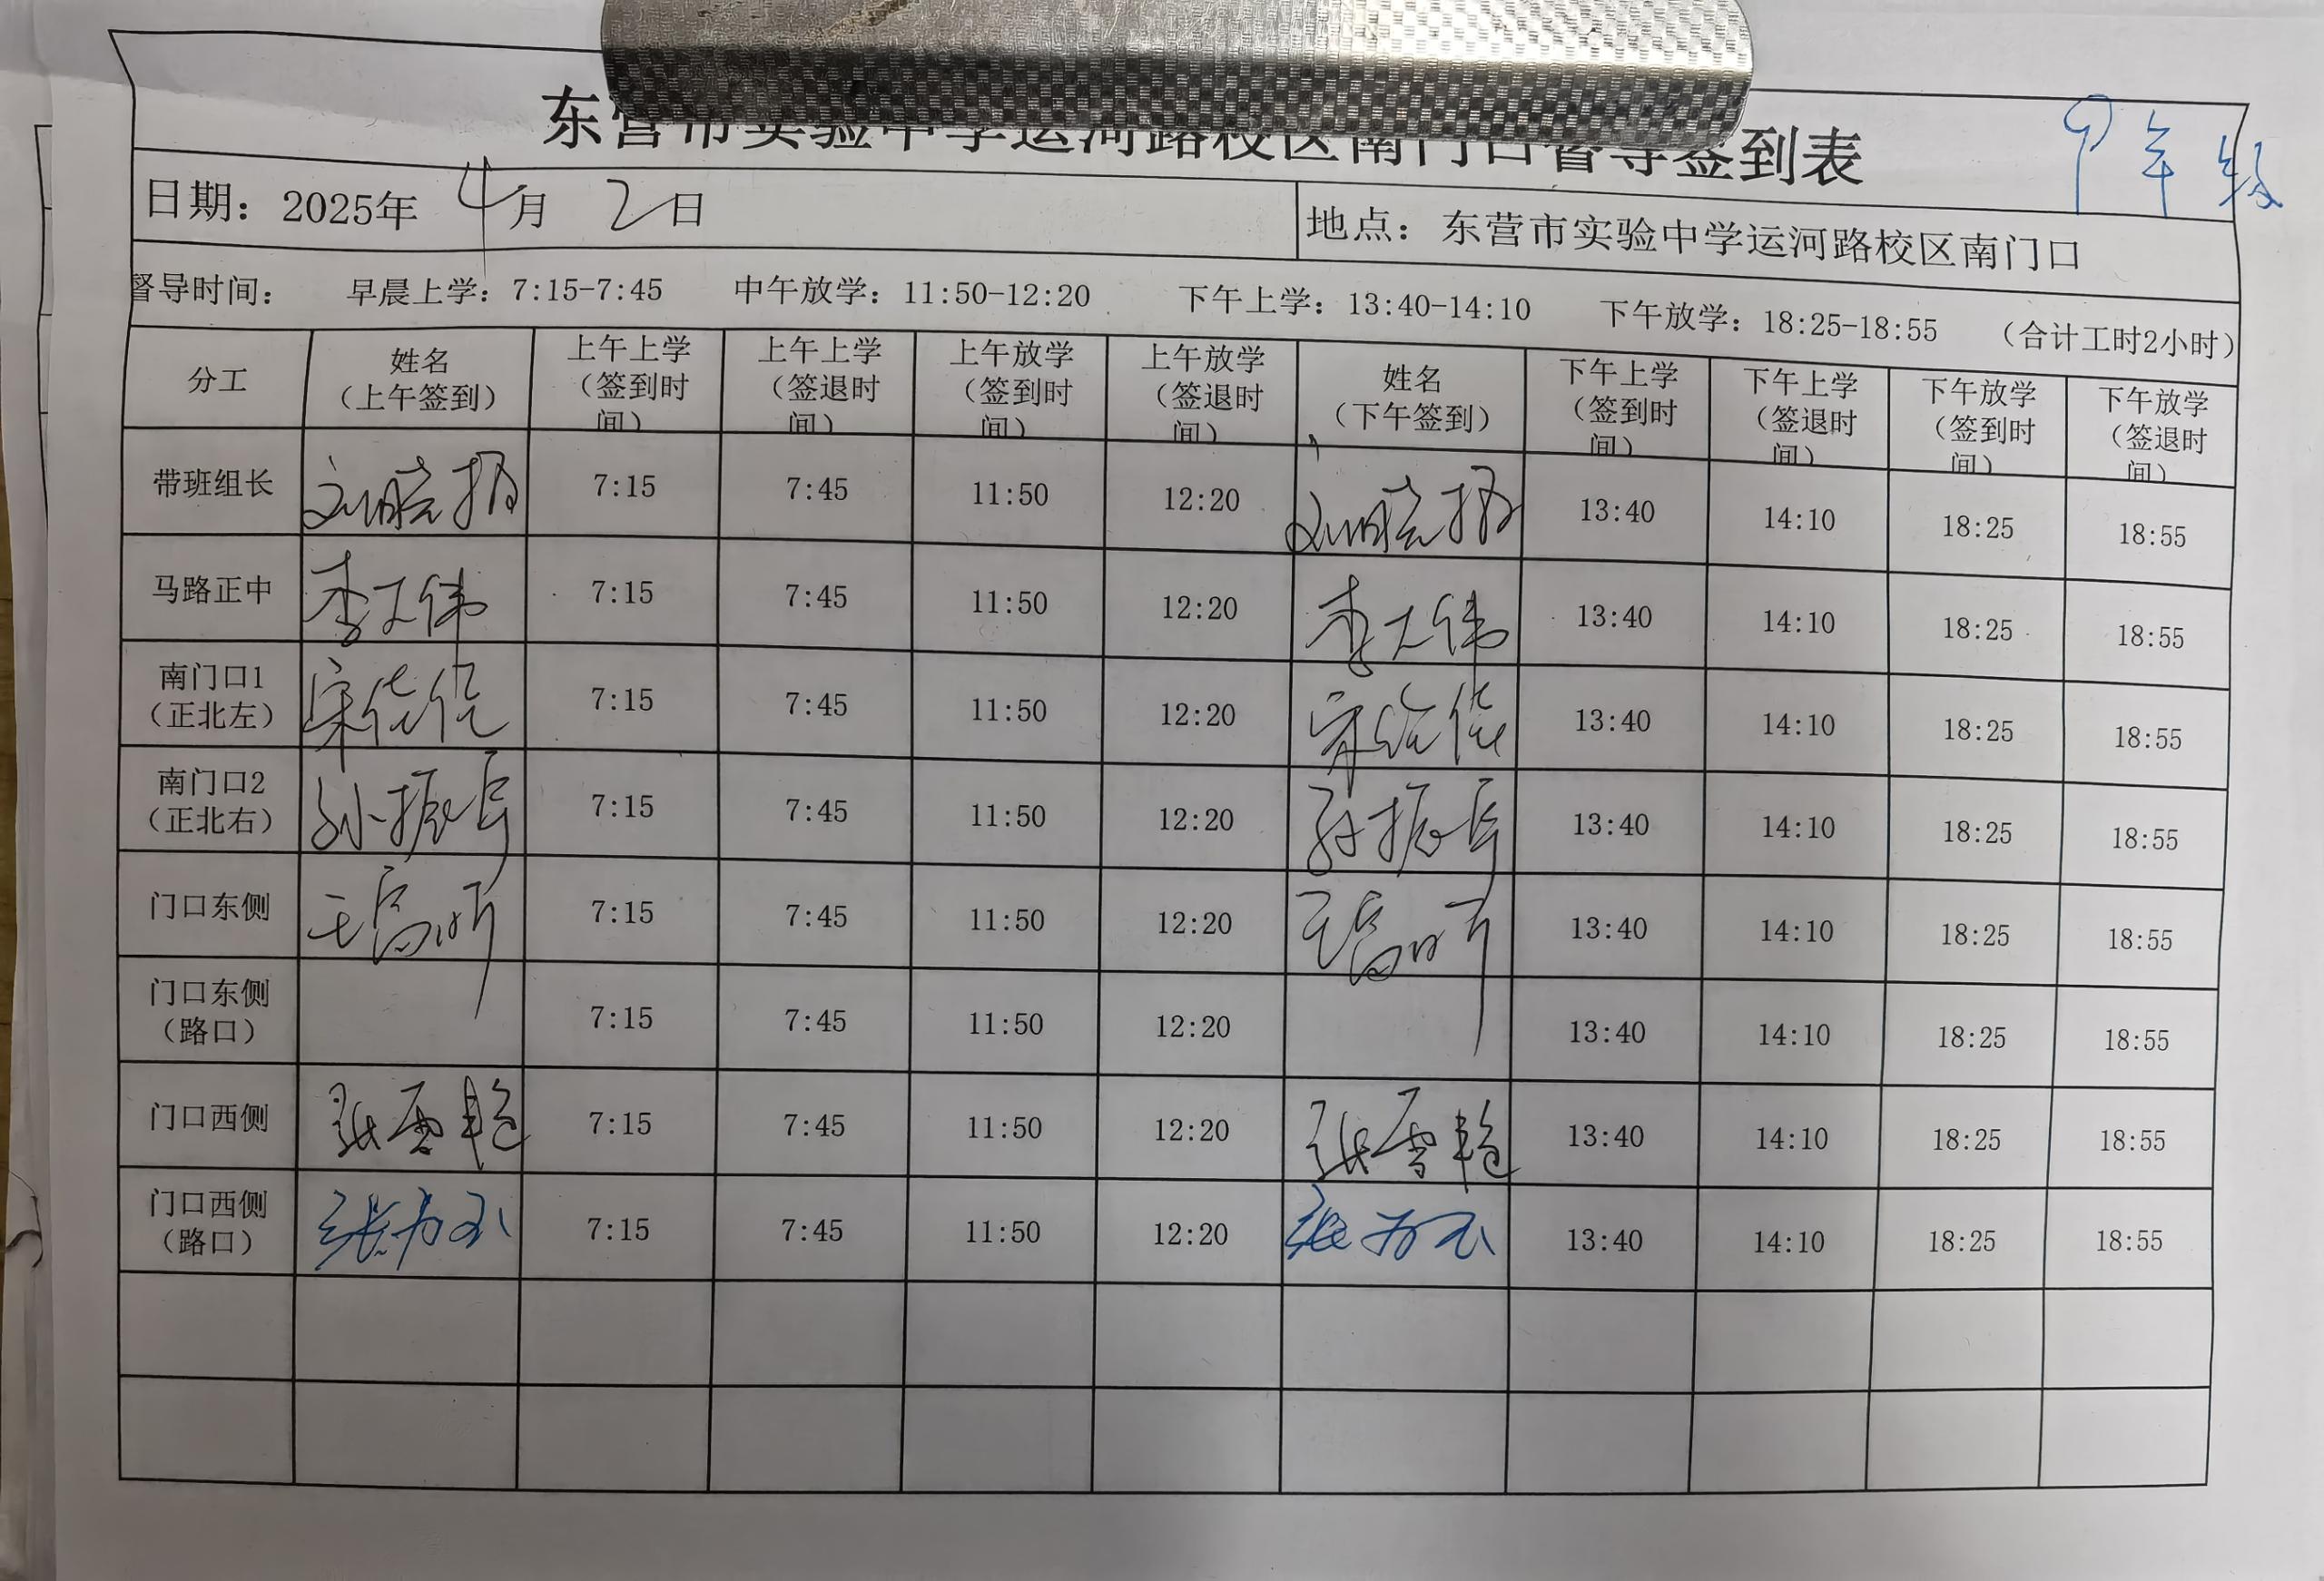 东营市实验中学运河路校区南门口督导签到表
年级
日期：2025年 4月 2日
地点：东营市实验中学运河路校区南门口
督导时间： 早晨上学：7:15-7:45 中午放学：11:50-12:20 下午上学：13:40-14:10 下午放学：18:25-18:55 （合计工时2小时）
分工 姓名（上午签到） 上午上学（签到时间） 上午上学（签退时间） 上午放学（签到时间） 上午放学（签退时间） 姓名（下午签到） 下午上学（签到时间） 下午上学（签退时间） 下午放学（签到时间） 下午放学（签退时间）
带班组长 7:15 7:45 11:50 12:20 13:40 14:10 18:25 18:55
马路正中 7:15 7:45 11:50 12:20 13:40 14:10 18:25 18:55
南门口1（正北左） 7:15 7:45 11:50 12:20 13:40 14:10 18:25 18:55
南门口2（正北右） 7:15 7:45 11:50 12:20 13:40 14:10 18:25 18:55
门口东侧 7:15 7:45 11:50 12:20 13:40 14:10 18:25 18:55
门口东侧（路口） 7:15 7:45 11:50 12:20 13:40 14:10 18:25 18:55
门口西侧 张雪艳 7:15 7:45 11:50 12:20 张雪艳 13:40 14:10 18:25 18:55
门口西侧（路口） 7:15 7:45 11:50 12:20 13:40 14:10 18:25 18:55